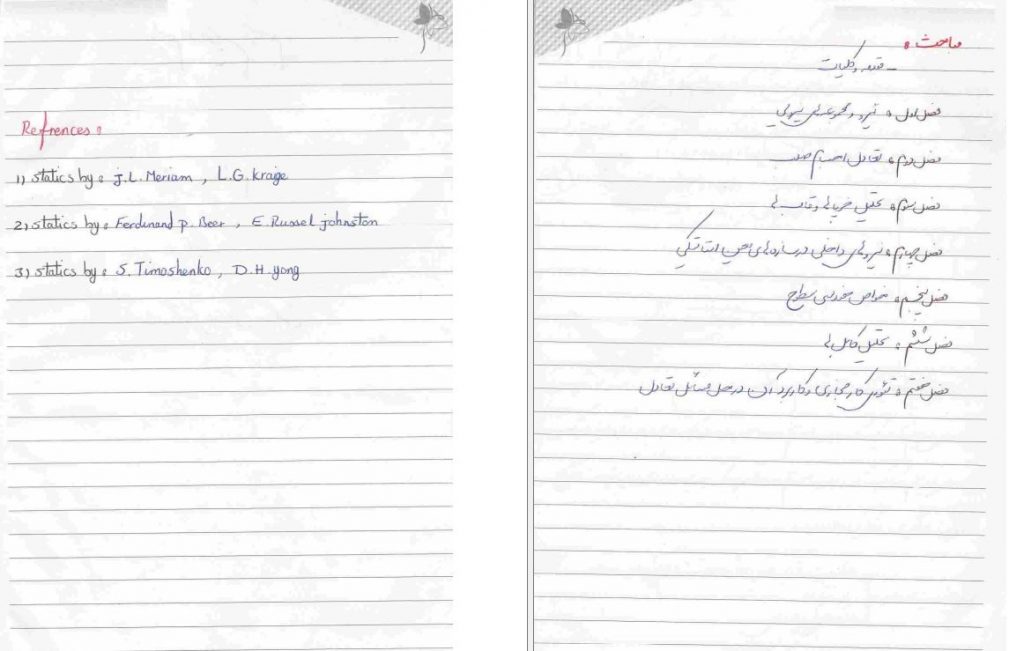 Refrences:
1) statics by: J.L. Meriam , L.G. Kraige
2) statics by: Ferdinand P. Beer , E. Russel johnston
3) statics by: S. Timoshenko , D.H. yong
مباحث:
- مقدمه و کلیات
فصل اول: نیرو و مجموعه‌های نیرویی
فصل دوم: تعادل اجسام صلب
فصل سوم: تحلیل خرپاها و قاب‌ها
فصل چهارم: نیروهای داخلی در سازه‌های معین استاتیکی
فصل پنجم: خواص هندسی سطوح
فصل ششم: تحلیل کابل‌ها
فصل هفتم: تئوری کار مجازی و کاربرد آن در حل مسائل تعادل